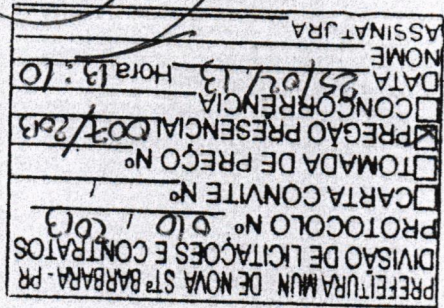 PREFEITURA MUN DE NOVA STª BARBARA - PR
DIVISÃO DE LICITAÇÕES E CONTRATOS
PROTOCOLO Nº 010 / 2013
CARTA CONVITE Nº /
TOMADA DE PREÇO Nº
PREGÃO PRESENCIAL 007/2013
CONCORRÊNCIA
DATA 25/02/13 Hora 13:10
NOME
ASSINATURA